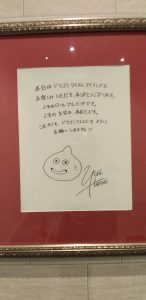 本日は ドラゴンクエスト アイランドに
お越しいただき ありがとうございます。
人生はロールプレイングです。
人生の主役は、あなたです。
これからも ドラゴンクエストを よろしく
お願いしますね!!
Yuji
Horii